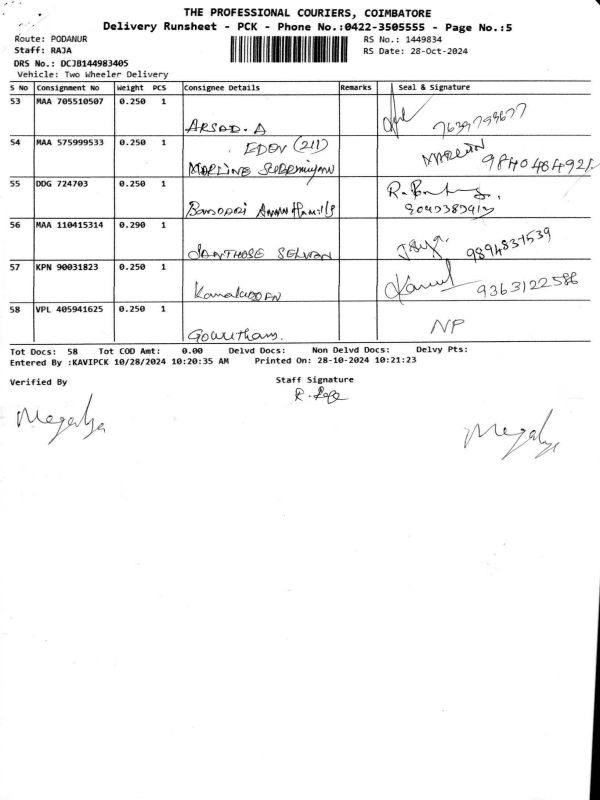 THE PROFESSIONAL COURIERS, COIMBATORE
Delivery Runsheet - PCK - Phone No.:0422-3505555 - Page No.:5
Route: PODANUR RS No.: 1449834
Staff: RAJA RS Date: 28-Oct-2024
DRS No.: DCJB144983405
Vehicle: Two Wheeler Delivery
S No Consignment No Weight PCS Consignee Details Remarks Seal & Signature
53 MAA 705510507 0.250 1
ARSAD. A
54 MAA 575999533 0.250 1 EDEN (211)
MARLIN
55 DDG 724703 0.250 1
56 MAA 110415314 0.290 1
9894837539
SANTHOSE SELVAN
57 KPN 90031823 0.250 1
9363122586
58 VPL 405941625 0.250 1
NP
Gowtham.
Tot Docs: 58 Tot COD Amt: 0.00 Delvd Docs: Non Delvd Docs: Delvy Pts:
Entered By :KAVIPCK 10/28/2024 10:20:35 AM Printed On: 28-10-2024 10:21:23
Verified By Staff Signature